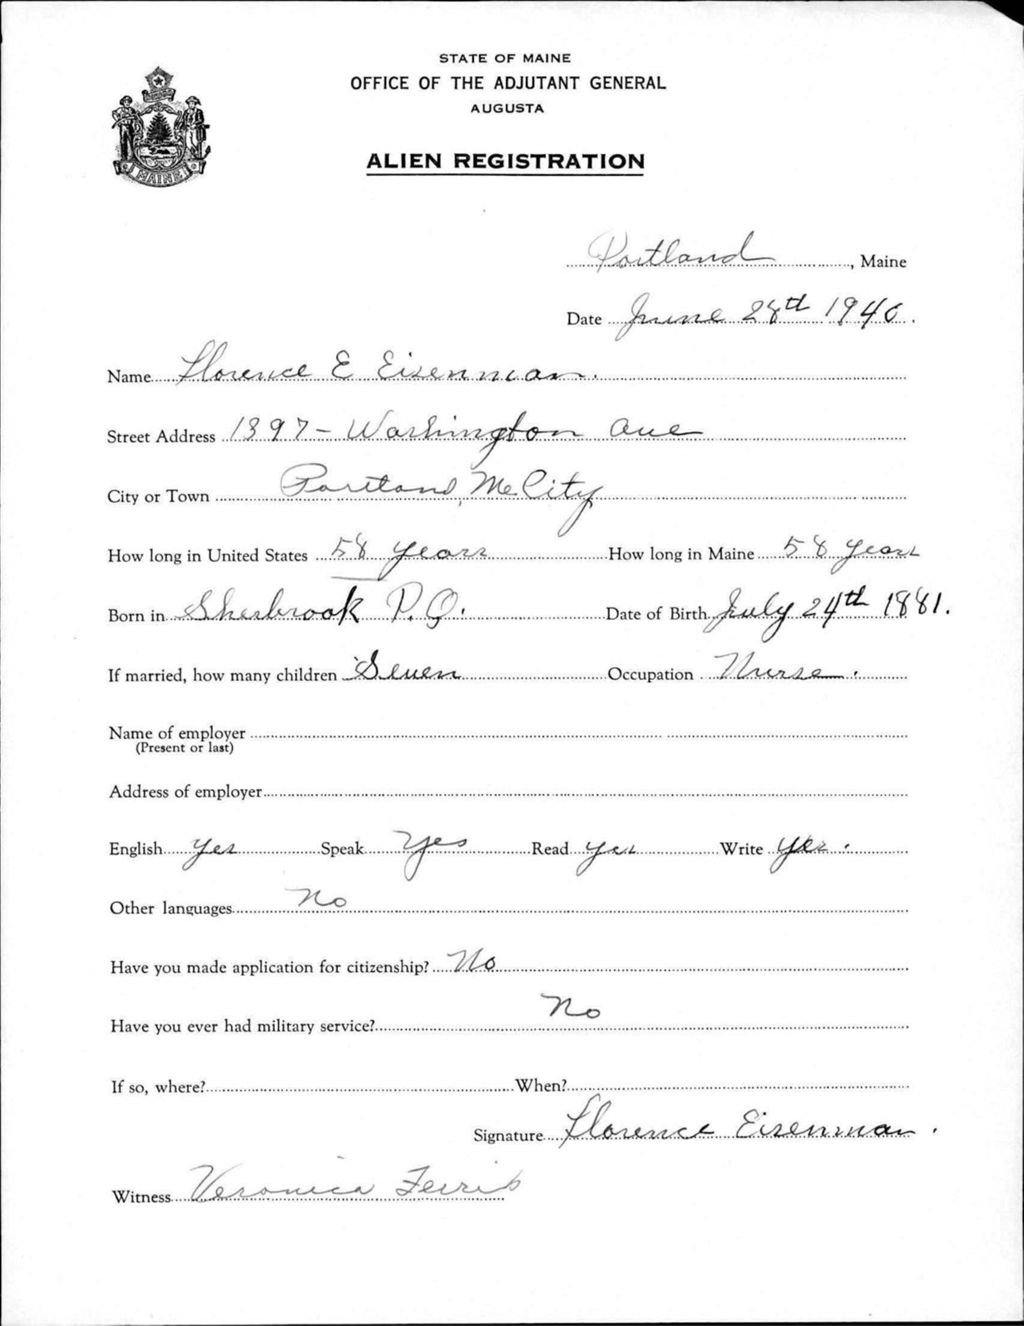 STATE OF MAINE
OFFICE OF THE ADJUTANT GENERAL
AUGUSTA
ALIEN REGISTRATION
MAINE
Portland, Maine
Date June 28th 1940.
Name Florence E Eisenman.
Street Address 1397 - Washington Ave
City or Town Portland, Me City
How long in United States 58 years How long in Maine 58 years
Born in Sherbrook P.Q. Date of Birth July 24th 1881.
If married, how many children Seven Occupation Nurse.
Name of employer
(Present or last)
Address of employer
English yes Speak yes Read yes Write yes.
Other languages No
Have you made application for citizenship? No
Have you ever had military service? No
If so, where? When?
Signature Florence Eisenman.
Witness Veronica Ferris